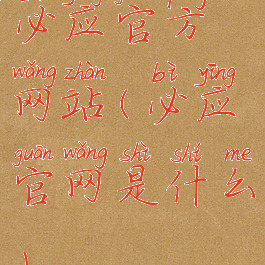 必应官方
wǎng zhàn bì yīng
网站(必应
guān wǎng shì shí me
官网是什么
)